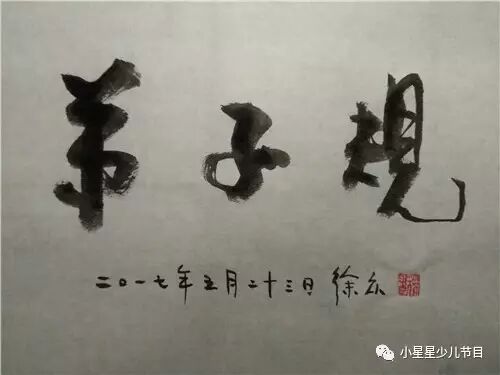 弟子規
二〇一七年五月二十三日 徐
小星星少儿节目